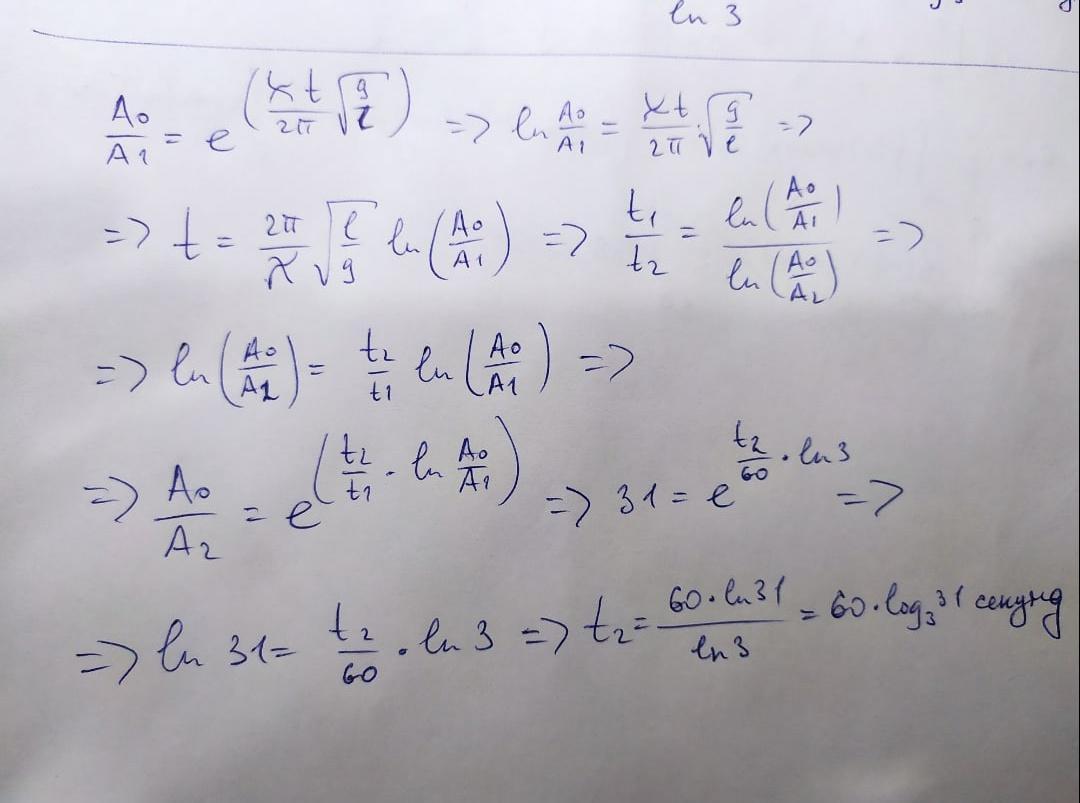 ln 3
A₀/A₁ = e^(λt/2π √(g/l)) => ln A₀/A₁ = λt/2π · √(g/l) =>
=> t = 2π/λ √(l/g) ln(A₀/A₁) => t₁/t₂ = ln(A₀/A₁)/ln(A₀/A₂) =>
=> ln(A₀/A₂) = t₂/t₁ ln(A₀/A₁) =>
=> A₀/A₂ = e^(t₂/t₁ · ln A₀/A₁) => 31 = e^(t₂/60 · ln 3) =>
=> ln 31 = t₂/60 · ln 3 => t₂ = 60·ln31/ln3 = 60·log₃31 секунд